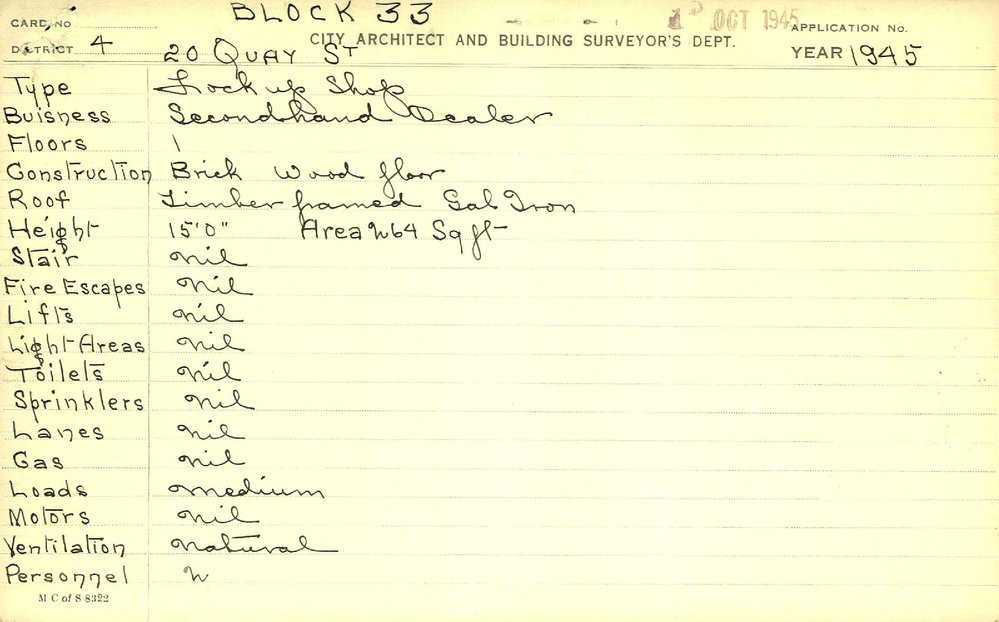 BLOCK 33
CARD NO
OCT 1945
APPLICATION No.
DISTRICT 4
20 QUAY ST
CITY ARCHITECT AND BUILDING SURVEYOR'S DEPT.
YEAR 1945
Type Lock up Shop
Buisness Secondhand Dealer
Floors 1
Construction Brick Wood floor
Roof Timber framed Gal Iron
Height 15'0" Area 264 Sq ft
Stair nil
Fire Escapes nil
Lifts nil
Light Areas nil
Toilets nil
Sprinklers nil
Lanes nil
Gas nil
Loads medium
Motors nil
Ventilation natural
Personnel 2
M C of S 8322